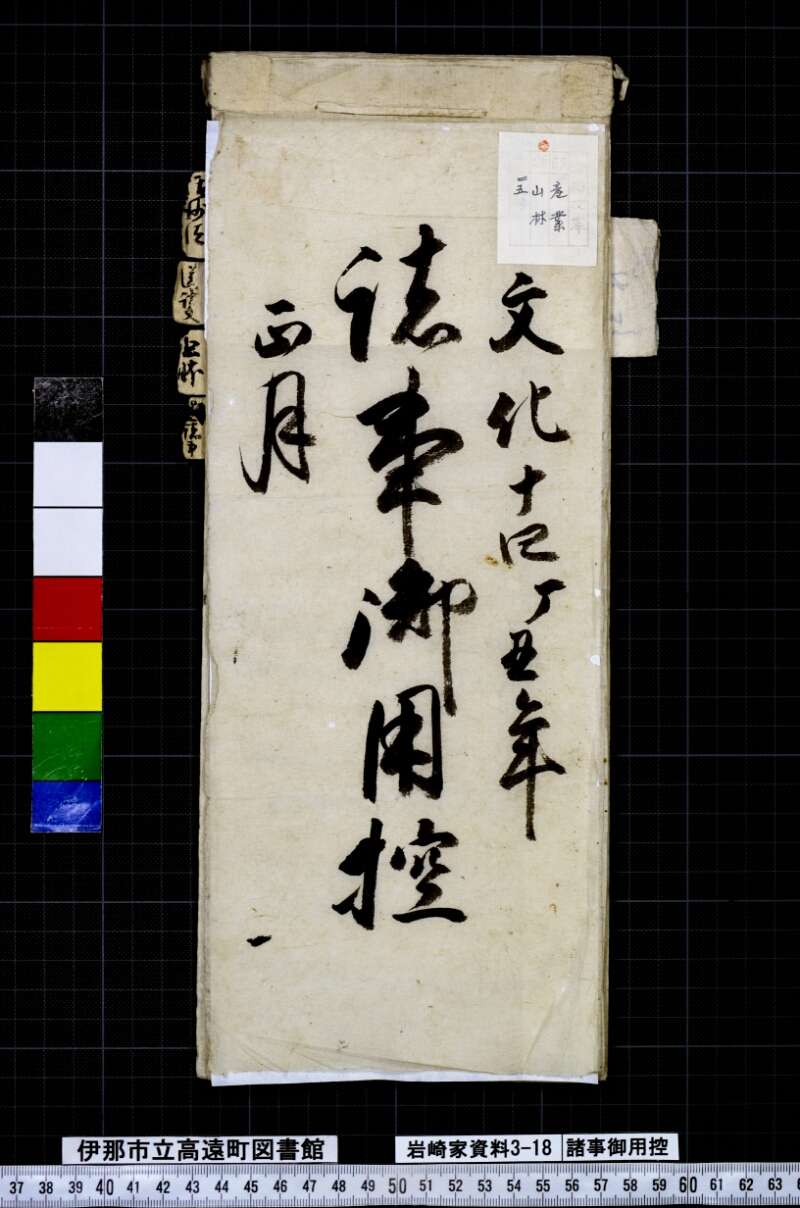 産業
山林
一五
文化十四丁丑年
諸事御用控
正月
一
伊那市立高遠町図書館
岩崎家資料3-18
諸事御用控
37 38 39 40 41 42 43 44 45 46 47 48 49 50 51 52 53 54 55 56 57 58 59 60 61 62 63